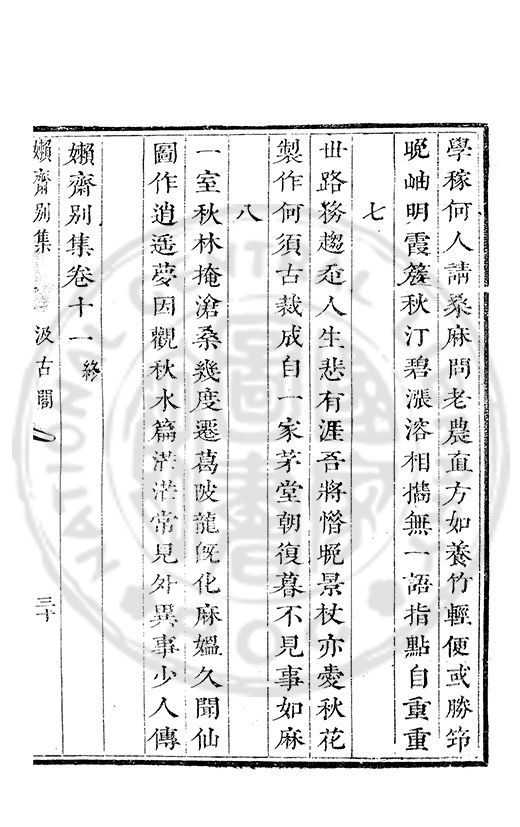 學稼何人請桑麻問老農直方如養竹輕便或勝筇
晚岫明霞簇秋汀碧漲溶相攜無一語指點自重重
七
世路務趨歪人生悲有涯吾將惜晚景杖亦愛秋花
製作何須古裁成自一家茅堂朝復暮不見事如麻
八
一室秋林掩滄桑幾度遷葛陂龍旣化麻媼久聞仙
圖作逍遥夢因觀秋水篇茫茫常見外異事少人傳
嬾齋別集卷十一終
嬾齋別集 汲古閣 三十